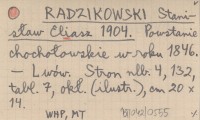 RADZIKOWSKI Stani-
sław Eljasz 1904. Powstanie
chochołowskie w roku 1846.
— Lwów. Stron nlb. 4, 132,
tabl. 7, okł. (ilustr.), cm 20 ×
14.
WHP, MT